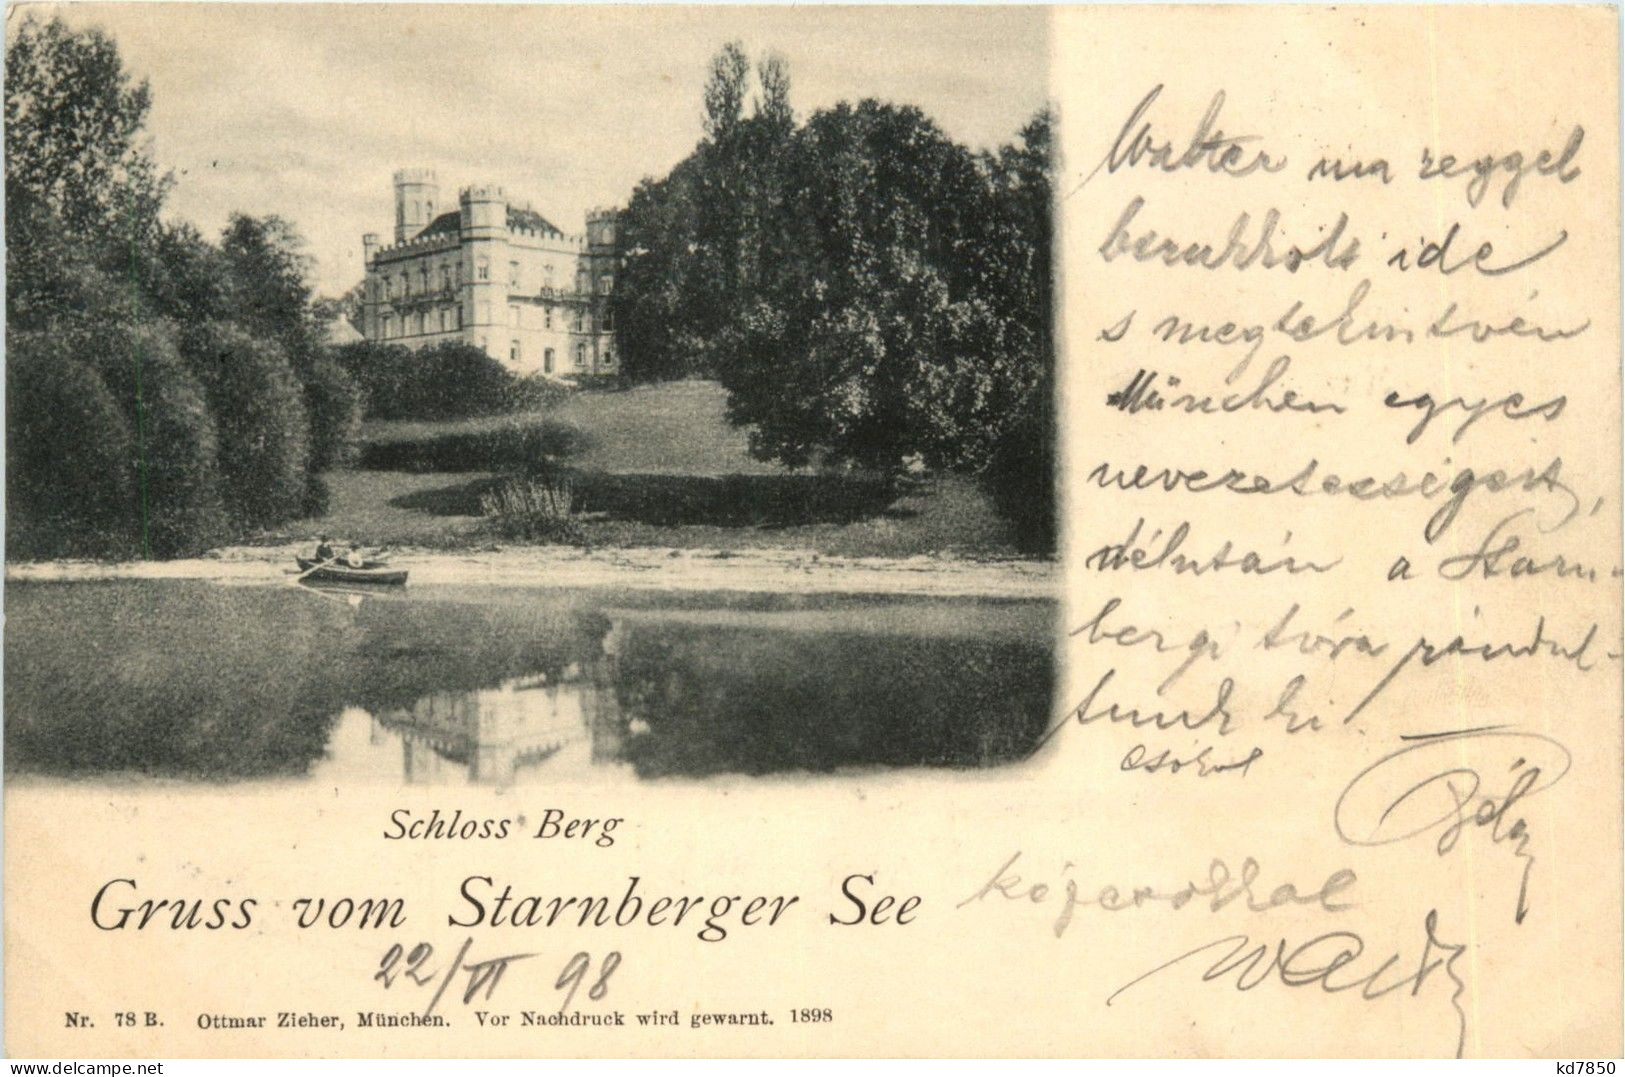 Walter ma reggel
berukkolt ide
s megtekintvén
München egyes
nevezetességeit,
délután a Starn-
bergi tóra rándul-
tunk ki.
Csókol
Béla
Schloss Berg
Gruss vom Starnberger See
22/VI 98
Walter
Nr. 78 B. Ottmar Zieher, München. Vor Nachdruck wird gewarnt. 1898
www.delcampe.net
kd7850